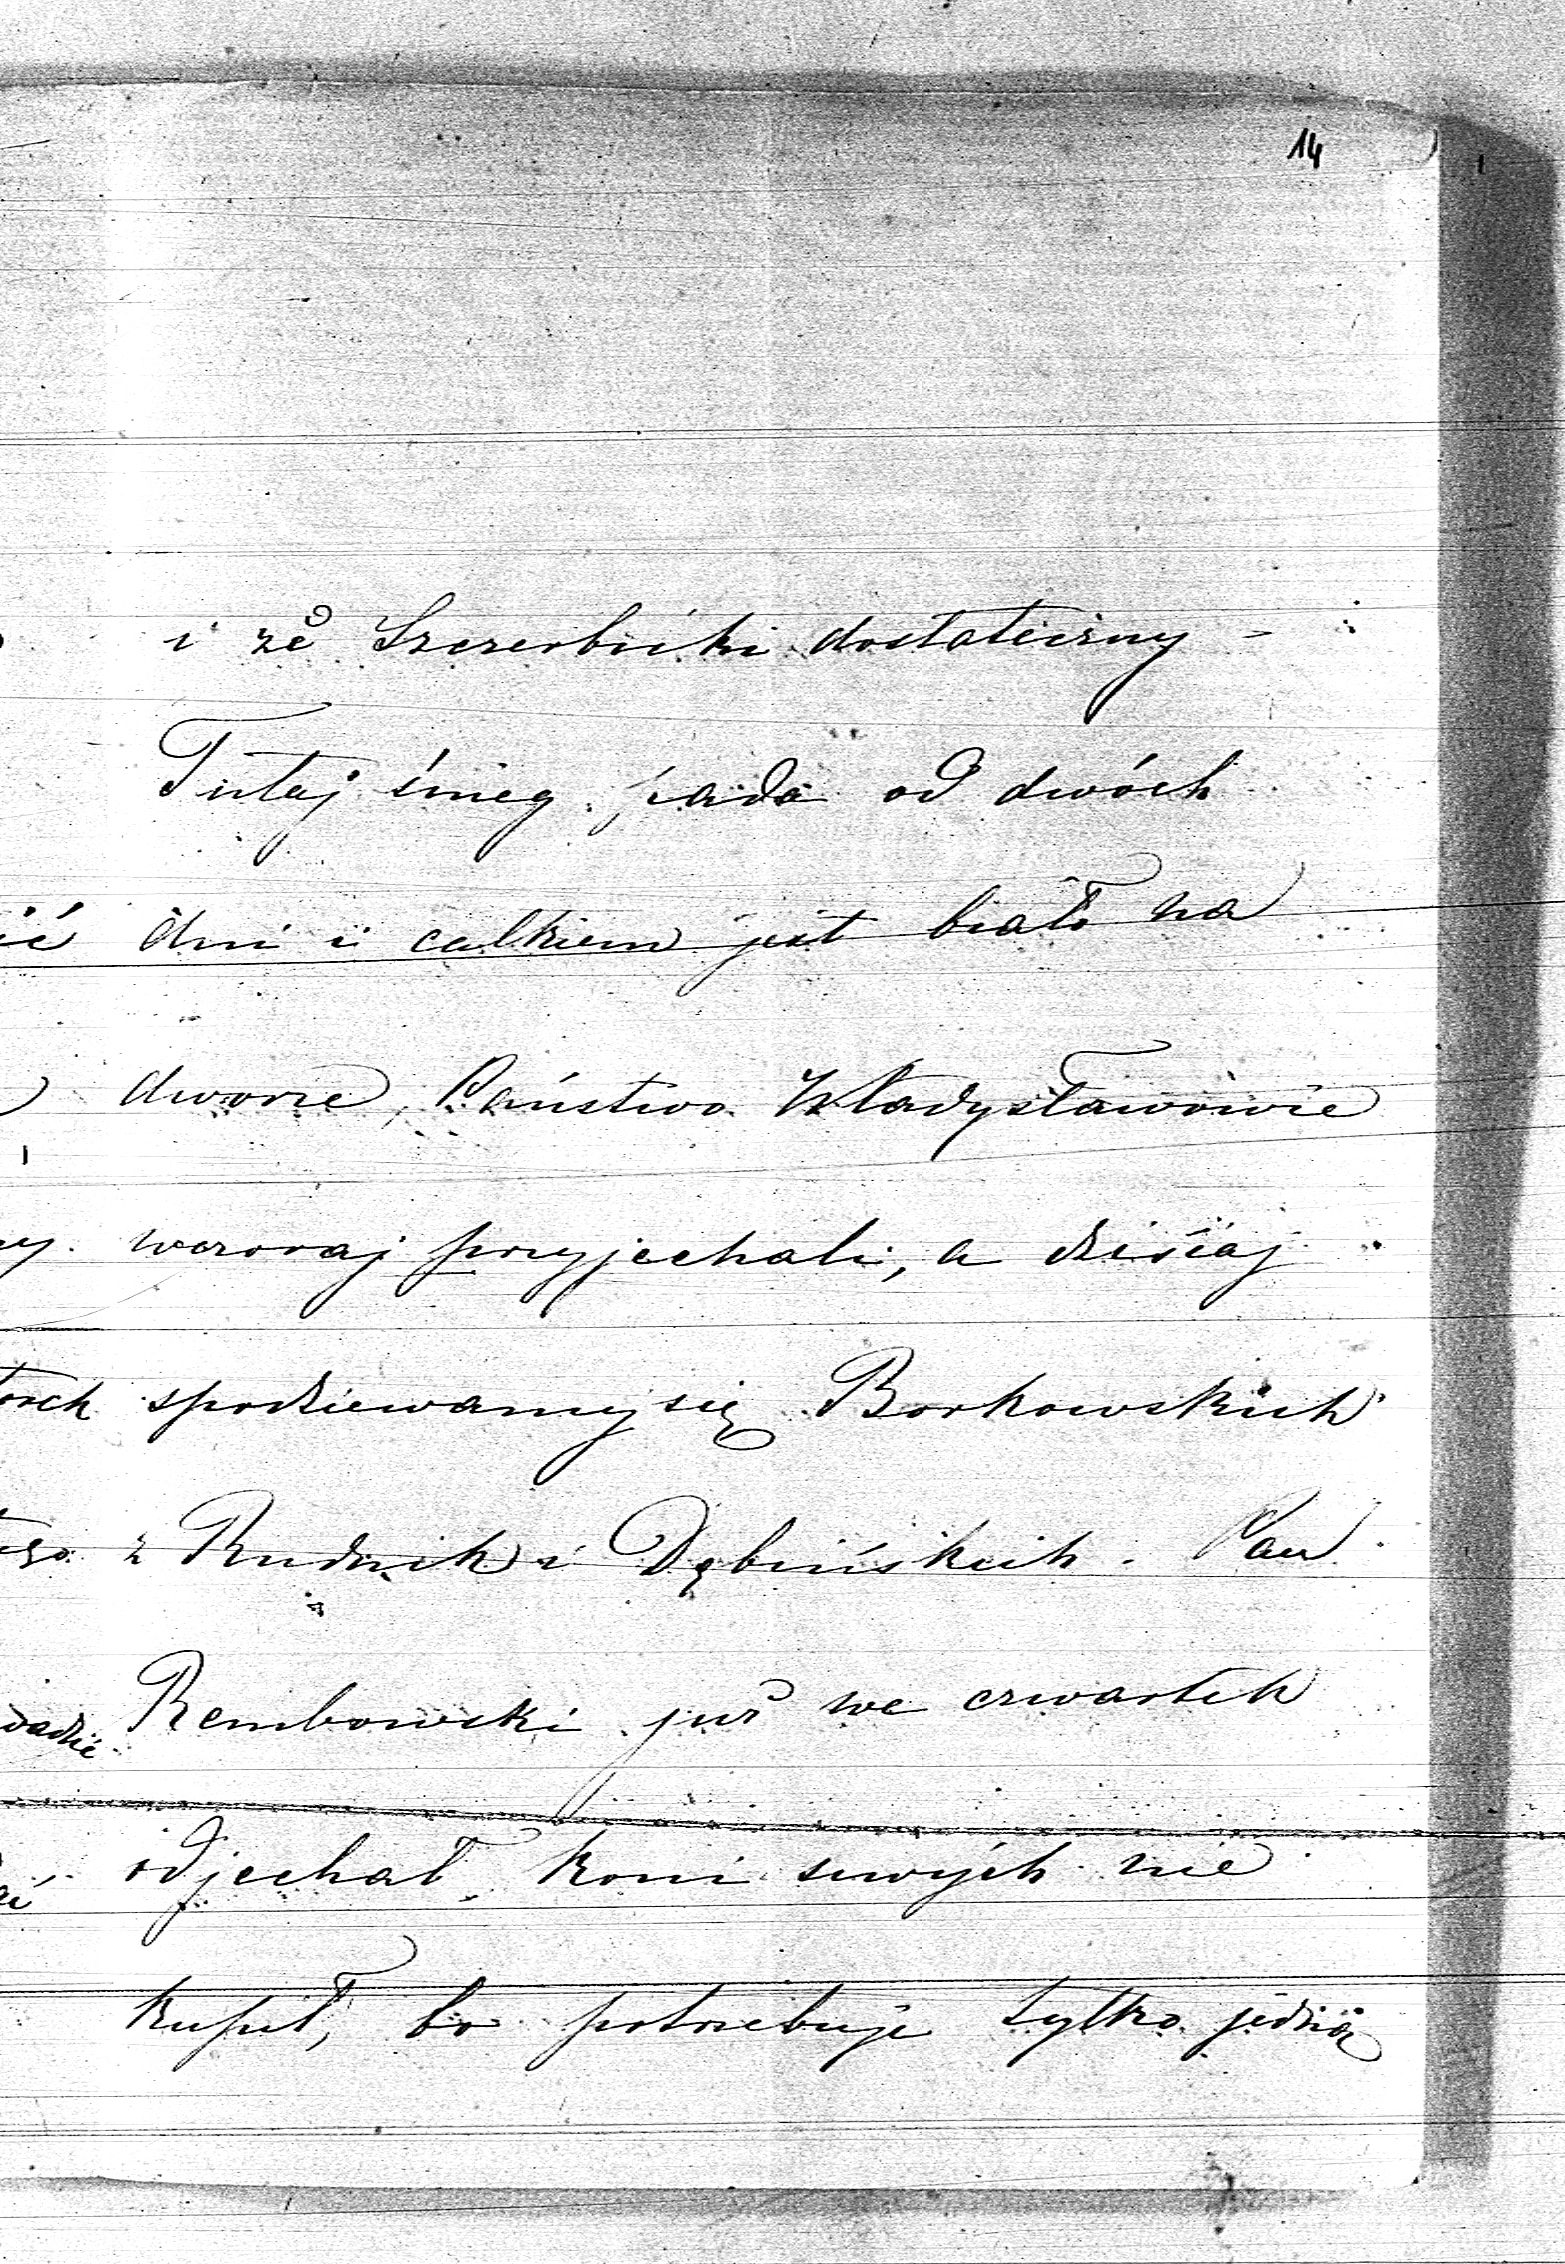 14
i że Szczerbicki dostateczny -
Tutaj śnieg pada od dwóch
dni i całkiem jest biało na
dworze, Państwo Władysławowie
wczoraj przyjechali, a dzisiaj
spodziewamy się Borkowskich
z Rudnik i Dębińskich. Pan
Rembowski już we czwartek
odjechał, koni swych nie
kupił, bo potrzebuje tylko